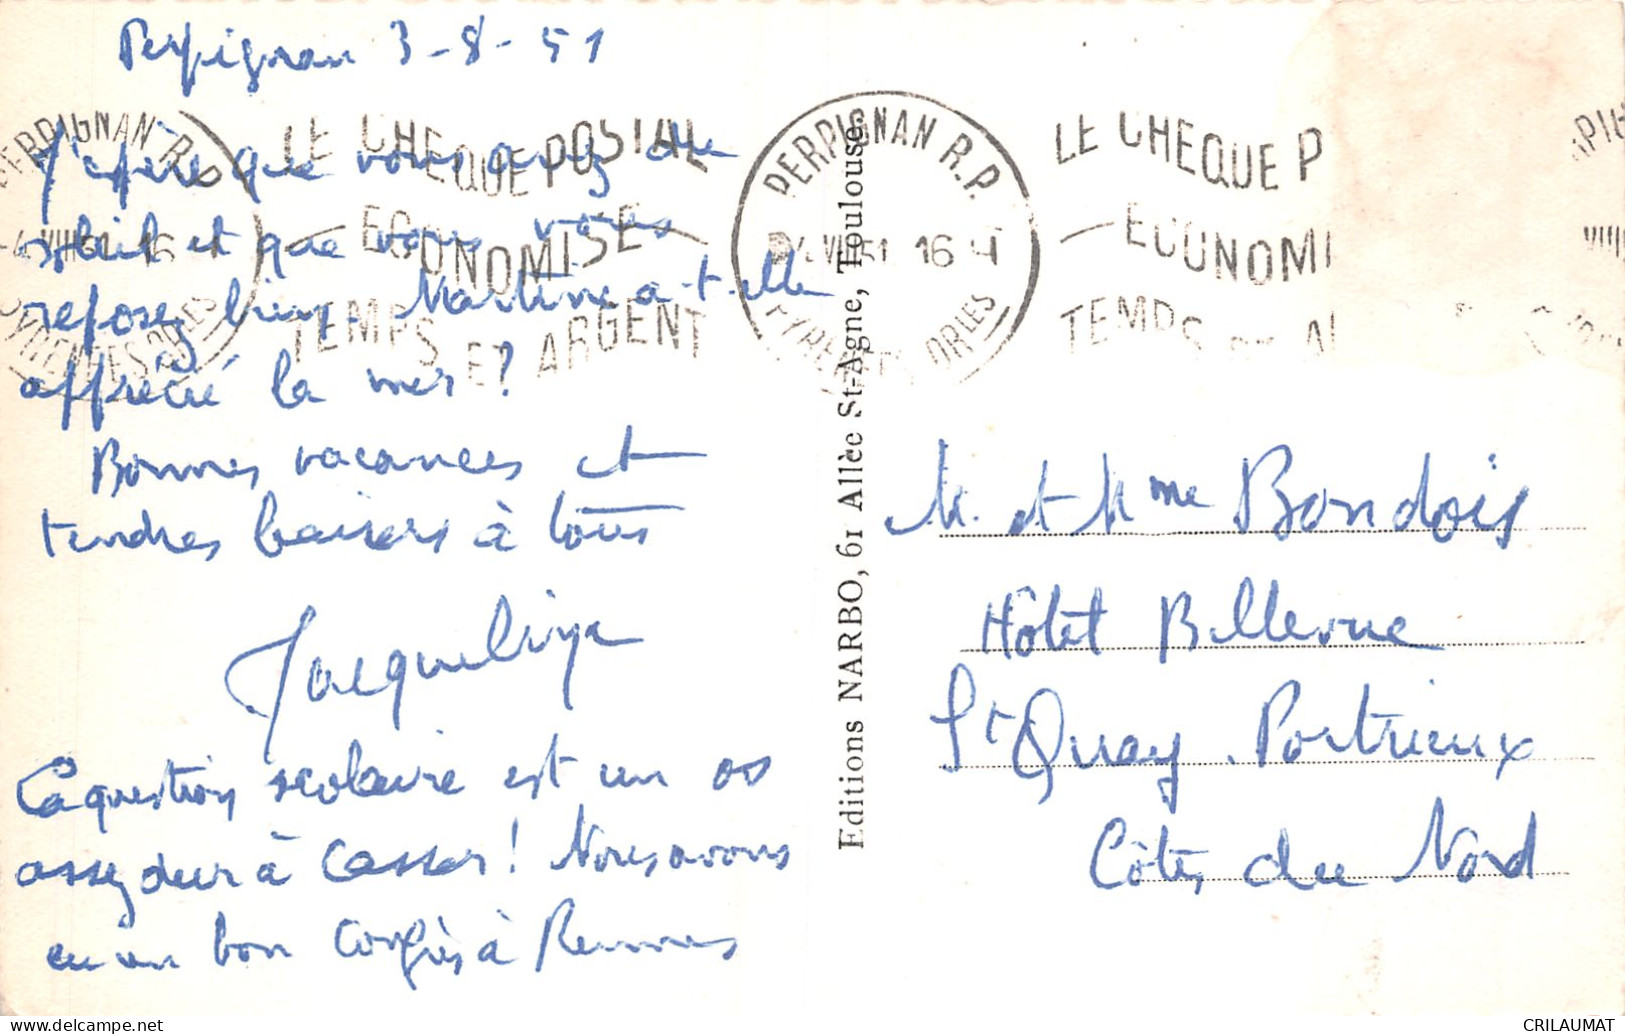 Perpignan 3-8-51
J'espère que vous avez du
soleil et que vous vous
reposez bien. Martine a-t-elle
apprécié la mer?
Bonnes vacances et
tendres baisers à tous
Jacqueline
La question scolaire est un os
assez dur à casser! Nous avons
eu un bon Congrès à Rennes
PERPIGNAN R.P.
VIII 51 16
PYRENEES ORLES
LE CHEQUE POSTAL
ECONOMISE
TEMPS ET ARGENT
PERPIGNAN R.P.
51 16
PYRENEES ORLES
LE CHEQUE P
ECONOMI
TEMPS
Editions NARBO, 61 Allèe St-Agne, Toulouse.
M. et Mme Bondois
Hôtel Bellevue
St Quay. Portrieux
Côtes du Nord
CRILAUMAT